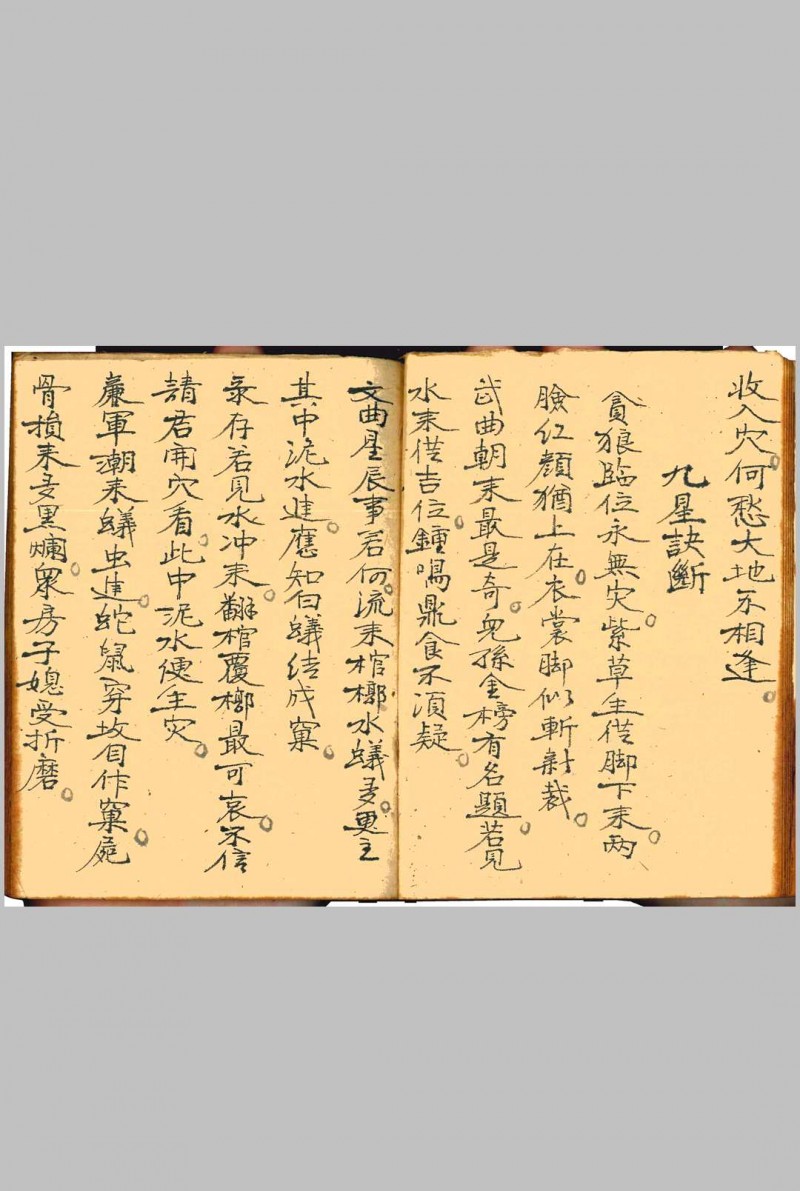 收入穴何愁大地不相逢
九星訣斷
貪狼臨位永無灾紫草生從脚下来两
臉红顏猶上在衣裳脚似斬新裁
武曲朝来最是奇兒孫金榜有名題若見
水来從吉位鍾鳴鼎食不須疑
文曲星辰事若何流来棺槨水蟻多更主
其中泥水進應知白蟻结成窠
录存若見水冲来翻棺覆槨最可哀不信
請君開穴看此中泥水便生灾
廉軍潮来蟻虫進蛇鼠穿坟自作窠屍
骨損来多黑爛眾房子媳受折磨